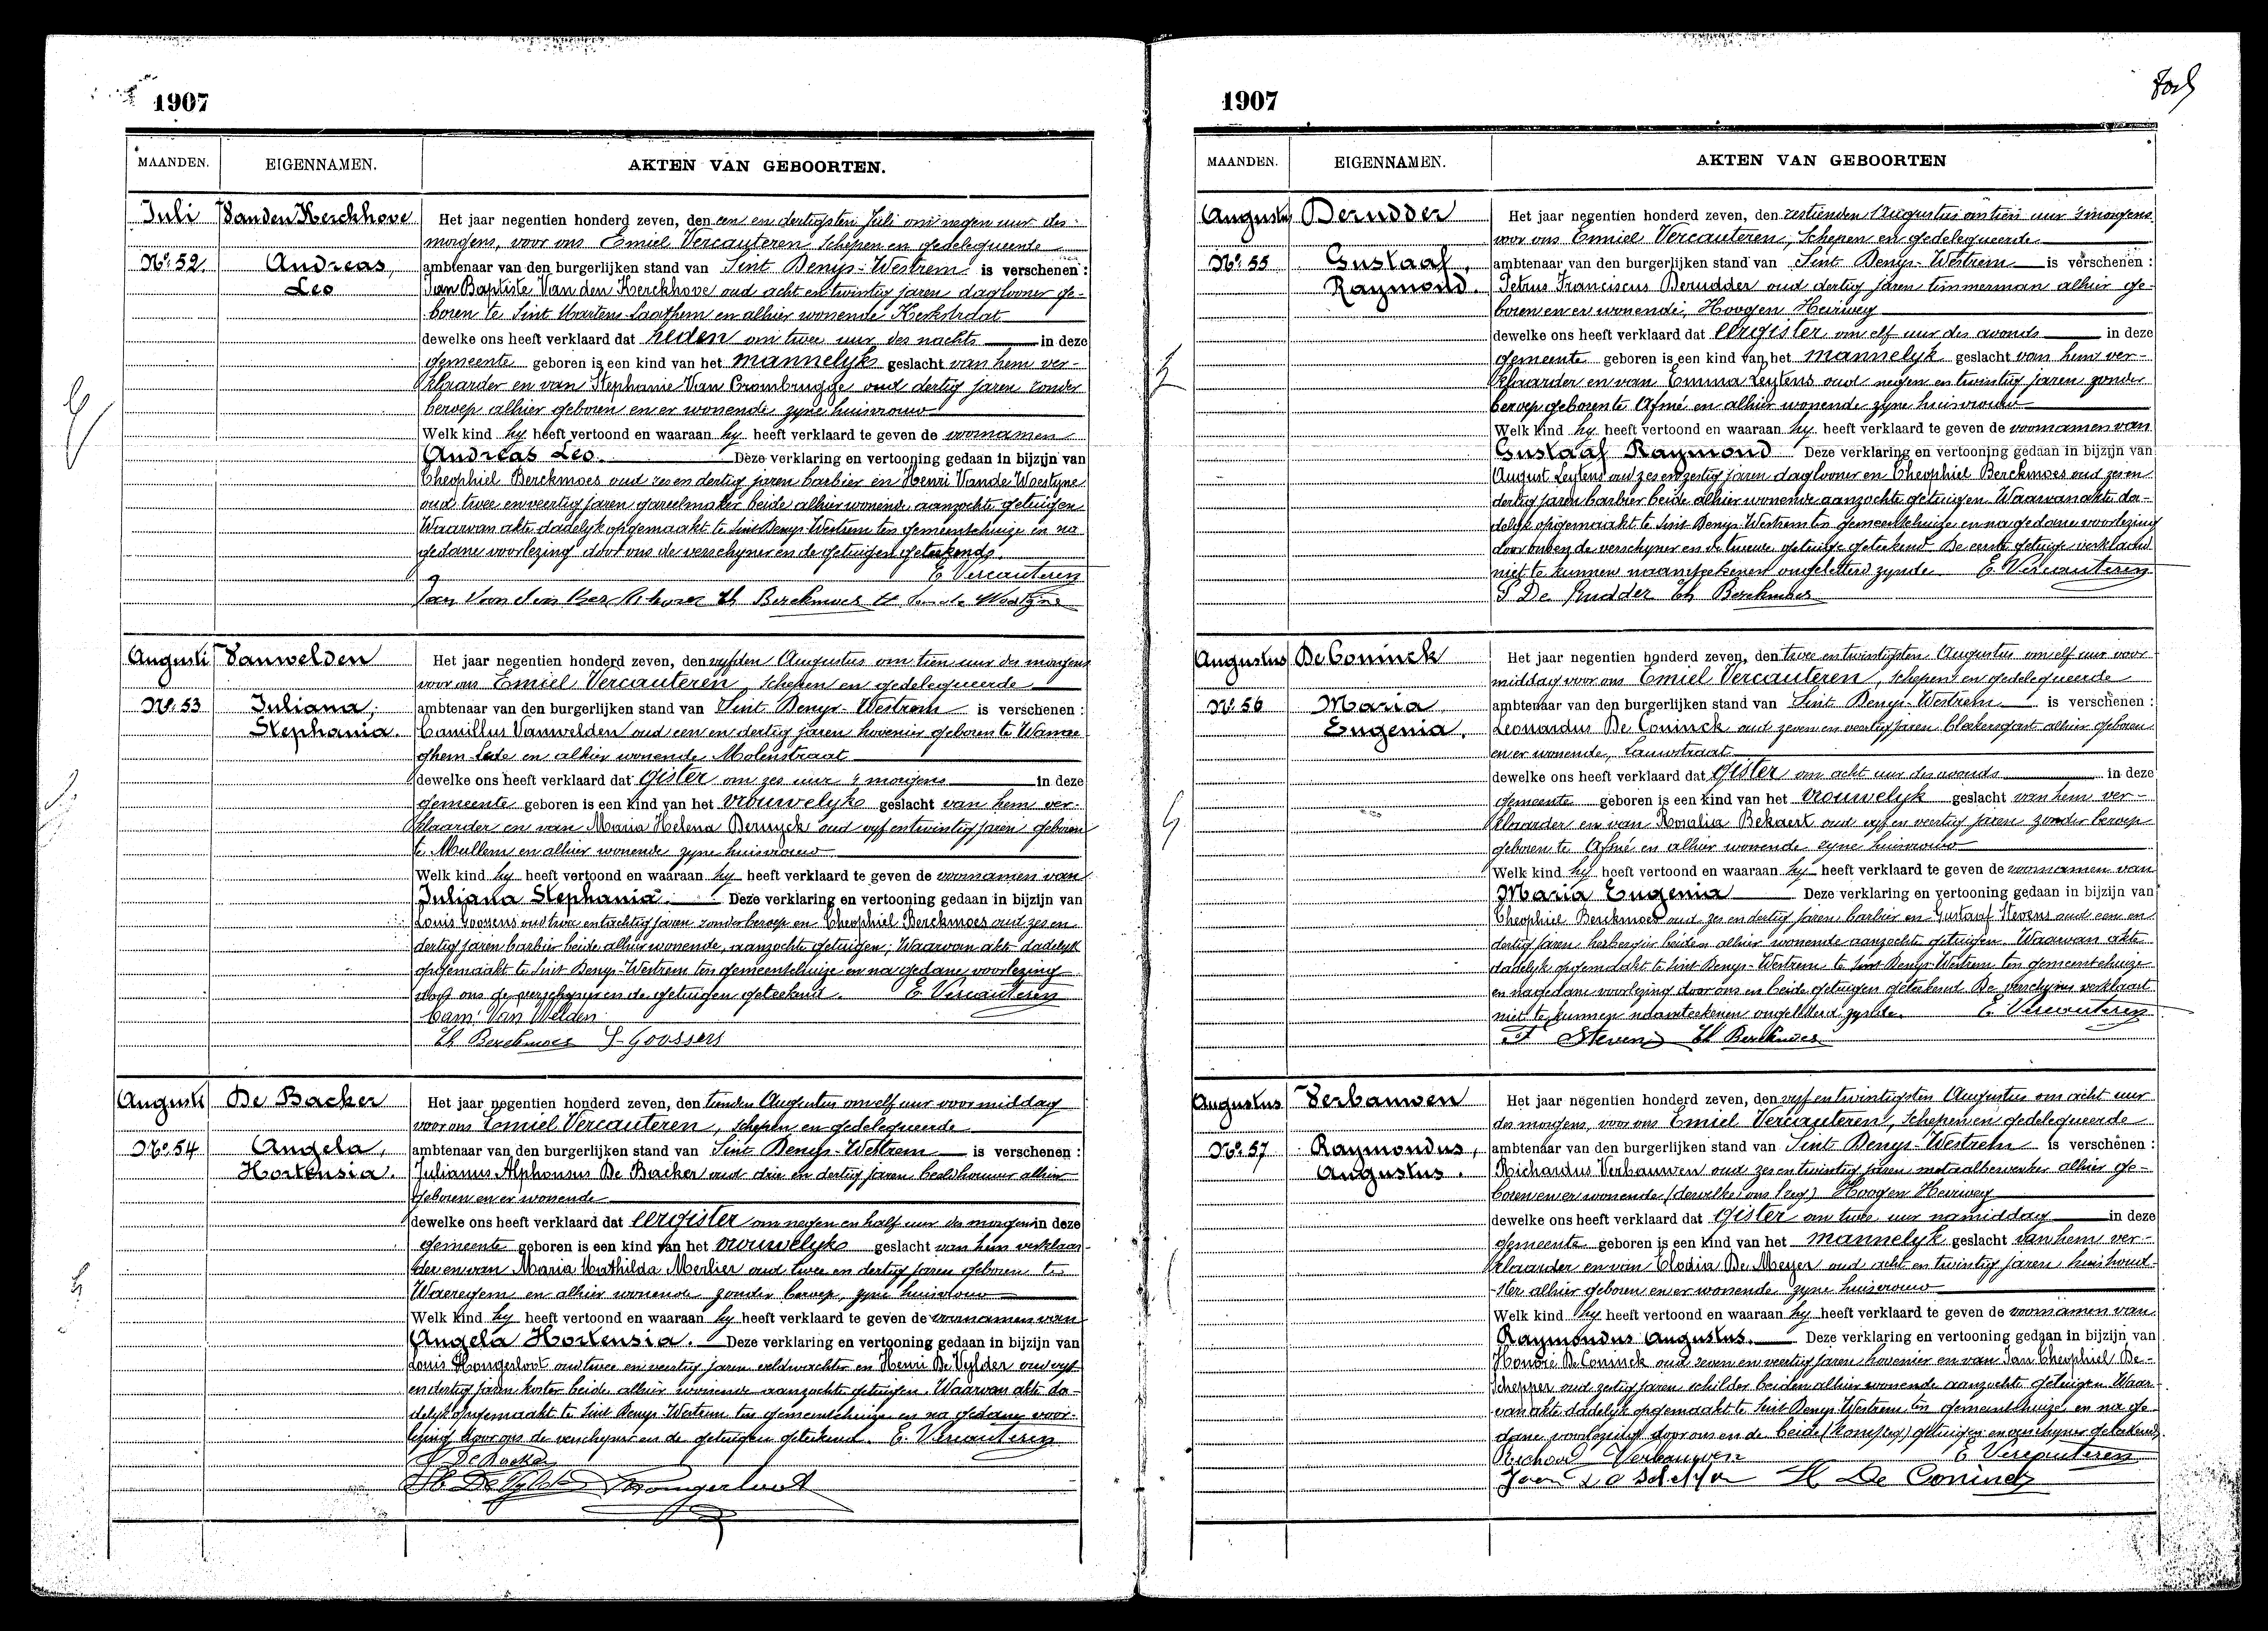 1907
MAANDEN. EIGENNAMEN. AKTEN VAN GEBOORTEN.
Juli Vanden Kerckhove Het jaar negentien honderd zeven, den een en dertigsten Juli om negen uur des
morgens, voor ons Emiel Vercauteren, Schepen en gedelegueerde
No. 52. Andreas, ambtenaar van den burgerlijken stand van Sint Denys-Westrem is verschenen :
Leo Jan Baptiste Van den Kerckhove oud acht en twintig jaren daglooner ge-
boren te Sint Martens Laathem en alhier wonende Kerkstraat
dewelke ons heeft verklaard dat heden om twee uur des nachts in deze
gemeente geboren is een kind van het mannelyk geslacht van hem ver-
klaarder en van Stephanie Van Crombrugge oud dertig jaren zonder
beroep alhier geboren en er wonende zyne huisvrouw
Welk kind hy heeft vertoond en waaraan hy heeft verklaard te geven de voornamen
Andreas Leo. Deze verklaring en vertooning gedaan in bijzijn van
Theophiel Berckmoes oud zes en dertig jaren barbier en Henri Vande Woestyne
oud twee en veertig jaren gareelmaker beide alhier wonende aanzochte getuigen
Waarvan akte dadelyk opgemaakt te Sint Denys-Westrem ten gemeentehuize en na
gedane voorlezing door ons de verschyner en de getuigen geteekend.
E. Vercauteren
Jan Van den Kerckhove Th Berckmoes H Van de Woestyne
Augusti Vanwelden Het jaar negentien honderd zeven, den vyfden Augustus om tien uur des morgens
voor ons Emiel Vercauteren, Schepen en gedelegueerde
No. 53 Juliana, ambtenaar van den burgerlijken stand van Sint Denys-Westrem is verschenen :
Stephania. Camillus Vanwelden oud een en dertig jaren hovenier geboren te Wanne
ghem-Lede en alhier wonende Molenstraat
dewelke ons heeft verklaard dat gister om zes uur 's morgens in deze
gemeente geboren is een kind van het vrouwelyke geslacht van hem ver-
klaarder en van Maria Helena Bernyck oud vyf en twintig jaren geboren
te Mullem en alhier wonende zyne huisvrouw
Welk kind hy heeft vertoond en waaraan hy heeft verklaard te geven de voornamen van
Juliana Stephania. Deze verklaring en vertooning gedaan in bijzijn van
Louis Goossens oud twee en tachtig jaren zonder beroep en Theophiel Berckmoes oud zes en
dertig jaren barbier beide alhier wonende, aanzochte getuigen; Waarvan akte dadelyk
opgemaakt te Sint Denys-Westrem ten gemeentehuize en na gedane voorlezing
door ons de verschyner en de getuigen geteekend. E. Vercauteren
Cam: Van Welden
Th Berckmoes L Goossens
Augusti De Backer Het jaar negentien honderd zeven, den tienden Augustus om elf uur voormiddag
voor ons Emiel Vercauteren, Schepen en gedelegueerde
No. 54 Angela, ambtenaar van den burgerlijken stand van Sint Denys-Westrem is verschenen :
Hortensia. Julianus Alphonsus De Backer oud drie en dertig jaren beeldhouwer alhier
geboren en er wonende
dewelke ons heeft verklaard dat eergister om negen en half uur des morgens in deze
gemeente geboren is een kind van het vrouwelyke geslacht van hem verklaar-
der en van Maria Mathilda Merlier oud twee en dertig jaren geboren te
Waeregem en alhier wonende zonder beroep, zyne huisvrouw
Welk kind hy heeft vertoond en waaraan hy heeft verklaard te geven de voornamen van
Angela Hortensia. Deze verklaring en vertooning gedaan in bijzijn van
Louis Hongerloot oud twee en veertig jaren veldwachter en Henri De Vylder oud vyf
en dertig jaren koster beide alhier wonende aanzochte getuigen. Waarvan akte da-
delyk opgemaakt te Sint Denys-Westrem ten gemeentehuize en na gedane voor-
lezing door ons de verschyner en de getuigen geteekend. E. Vercauteren
J De Backer
H. De Vylder Hongerloot
1907
MAANDEN. EIGENNAMEN. AKTEN VAN GEBOORTEN
Augustus Derudder Het jaar negentien honderd zeven, den zestienden Augustus om tien uur 's morgens
voor ons Emiel Vercauteren, Schepen en gedelegueerde
No. 55 Gustaaf, ambtenaar van den burgerlijken stand van Sint Denys-Westrem is verschenen :
Raymond. Petrus Franciscus Derudder oud dertig jaren timmerman alhier ge-
boren en er wonende, Hoogen Heirweg
dewelke ons heeft verklaard dat eergister om elf uur des avonds in deze
gemeente geboren is een kind van het mannelyk geslacht van hem ver-
klaarder en van Emma Leytens oud negen en twintig jaren zonder
beroep geboren te Afsné en alhier wonende zyne huisvrouw
Welk kind hy heeft vertoond en waaraan hy heeft verklaard te geven de voornamen van
Gustaaf Raymond Deze verklaring en vertooning gedaan in bijzijn van
August Leytens oud zes en zestig jaren daglooner en Theophiel Berckmoes oud zes en
dertig jaren barbier beide alhier wonende aanzochte getuigen. Waarvan akte da-
delyk opgemaakt te Sint Denys-Westrem ten gemeentehuize en na gedane voorlezing
door ons en de verschyner en de tweede getuige geteekend. De eerste getuige verklaard
niet te kunnen naamteekenen ongeletterd zynde. E. Vercauteren
P De Rudder Th Berckmoes
Augustus De Coninck Het jaar negentien honderd zeven, den twee en twintigsten Augustus om elf uur voor
middag voor ons Emiel Vercauteren, schepen en gedelegueerde
No. 56 Maria, ambtenaar van den burgerlijken stand van Sint Denys-Westrem is verschenen :
Eugenia. Leonardus De Coninck oud zeven en veertig jaren blekersgast alhier geboren
en er wonende, Lauwstraat
dewelke ons heeft verklaard dat gister om acht uur des avonds in deze
gemeente geboren is een kind van het vrouwelyk geslacht van hem ver-
klaarder en van Rosalia Bekaert oud vyf en veertig jaren zonder beroep
geboren te Afsné en alhier wonende zyne huisvrouw
Welk kind hy heeft vertoond en waaraan hy heeft verklaard te geven de voornamen van
Maria Eugenia Deze verklaring en vertooning gedaan in bijzijn van
Theophiel Berckmoes oud zes en dertig jaren barbier en Gustaaf Stevens oud een en
dertig jaren herbergier beiden alhier wonende aanzochte getuigen. Waarvan akte
dadelyk opgemaakt te Sint Denys-Westrem te Sint Denys-Westrem ten gemeentehuize
en na gedane voorlezing door ons en beide getuigen geteekend. De verschyner verklaard
niet te kunnen naamteekenen ongeletterd zynde. E. Vercauteren
Stevens Th Berckmoes
Augustus Verbauwen Het jaar negentien honderd zeven, den vyf en twintigsten Augustus om acht uur
des morgens, voor ons Emiel Vercauteren, Schepen en gedelegueerde
No. 57 Raymondus, ambtenaar van den burgerlijken stand van Sint Denys-Westrem is verschenen :
Augustus. Richardus Verbauwen oud zes en twintig jaren metaalbewerker alhier ge-
boren en er wonende (dewelke ons (zeg) Hoogen Heirweg
dewelke ons heeft verklaard dat gister om twee uur namiddag in deze
gemeente geboren is een kind van het mannelyk geslacht van hem ver-
klaarder en van Elodia De Meyer oud acht en twintig jaren, huishoud-
ster alhier geboren en er wonende zyne huisvrouw
Welk kind hy heeft vertoond en waaraan hy heeft verklaard te geven de voornamen van
Raymondus Augustus. Deze verklaring en vertooning gedaan in bijzijn van
Honoré De Coninck oud zeven en veertig jaren hovenier en van Jan Theophiel De-
Schepper oud zestig jaren schilder beiden alhier wonende aanzochte getuigen. Waar
van akte dadelyk opgemaakt te Sint Denys-Westrem ten gemeentehuize en na ge-
dane voorlezing door ons en de beide getuigen en verschyner geteekend.
Richard Verbauwen E Vercauteren
Jean De Schepper H De Coninck